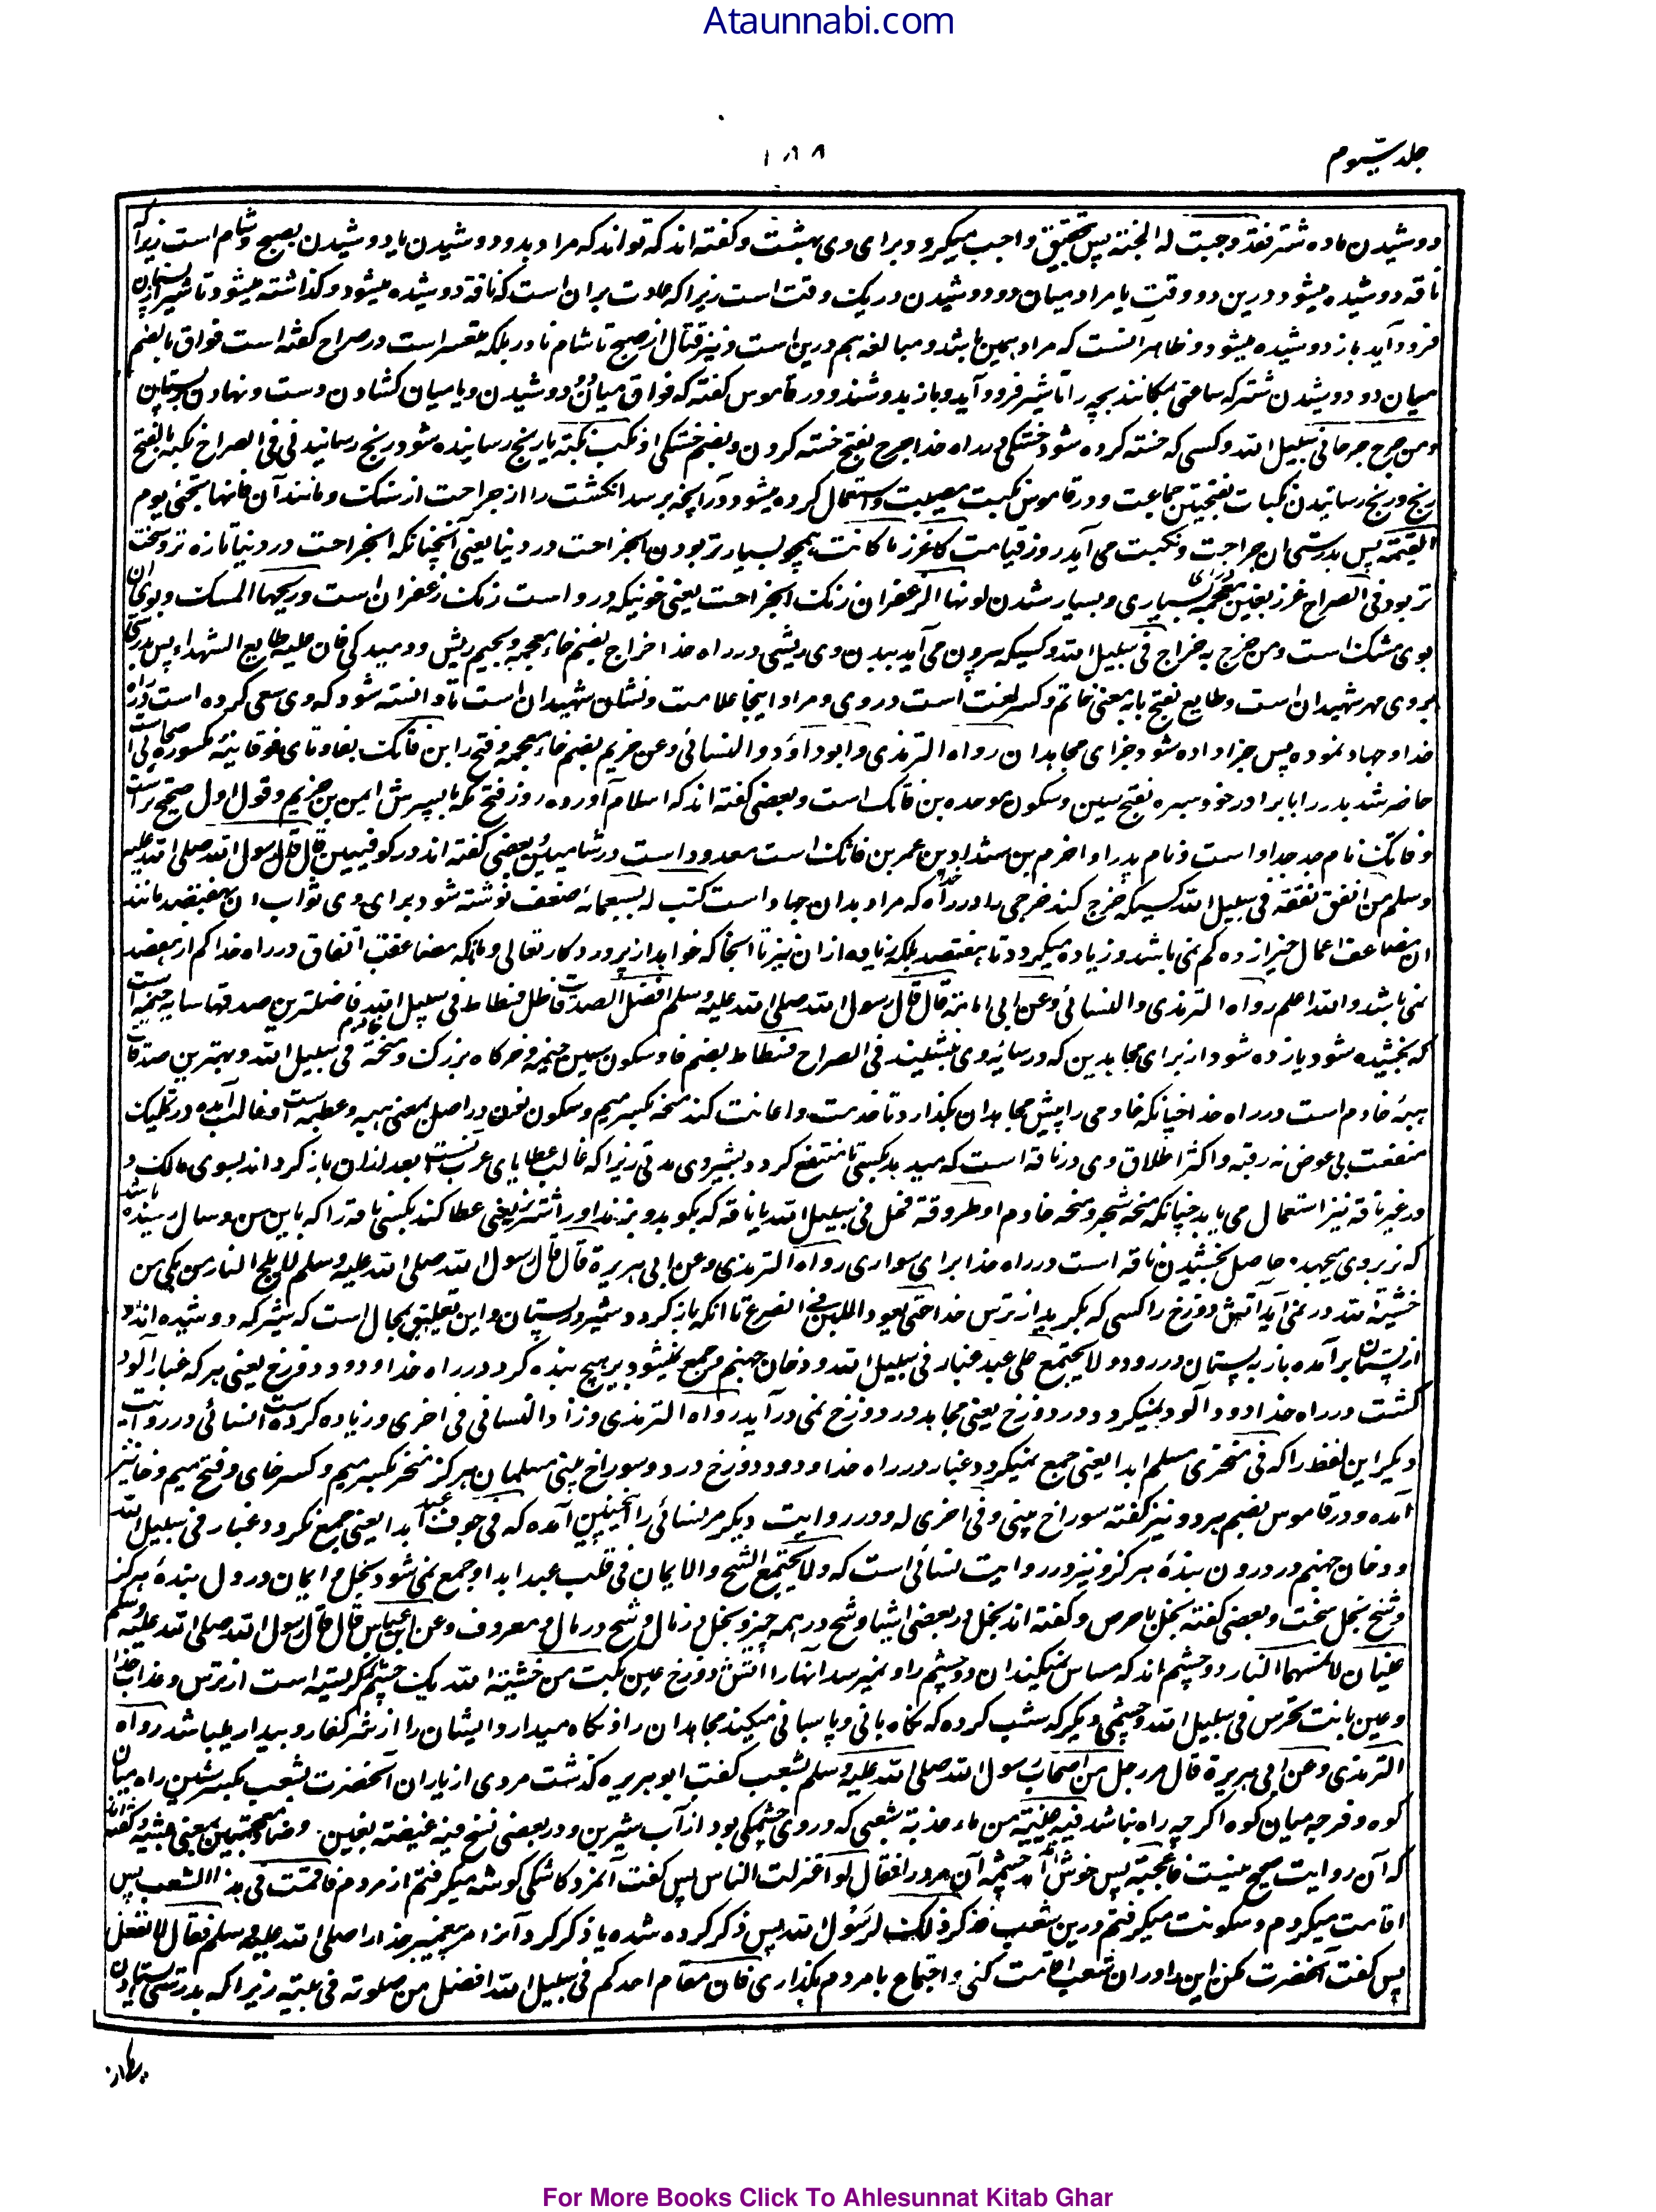 Ataunnabi.com
جلد سیوم
دوشیدن ماده شتر فقد وجبت له الجنة پس بتحقیق واجب میگردد برای وی بهشت و گفته اند که تواند که مراد بدو دوشیدن یا دوشیدن بصبح و شام است زیرا که
ناقه دوشیده میشود درین دو وقت یا مراد میان دو دوشیدن در یک وقت است زیرا که عادت بران است که ناقه دوشیده میشود و گذاشته میشود تا شیر از پستان
فرود آید باز دوشیده میشود و ظاهر آنست که مراد همین باشد و مبالغه هم درین است و نیز قتال از صبح تا شام نادر بلکه متعسر است در صراح گفته است فواق بالضم
میان دو دوشیدن شتر که ساعتی بمکانند بچه را تا شیر فرود آید و باز بدوشند و در قاموس گفته که فواق میان دو دوشیدن و یا میان گشادن دست و نهادن بر پستان
ومن جرح جرحا فی سبیل الله و کسی که خسته کرده شود خستگی در راه خدا جرح بفتح خسته کردن و بضم خستگی او نکب نکبة یا رنج رسانیده شود رنج رسانیدنی فی الصراح نکبه بالفتح
رنج و رنج رسانیدن نکبات بفتحتین جماعت و در قاموس نکبت مصیبت و استعمال کرده میشود در آنچه برسد انگشت را از جراحت از سنگ و مانند آن فانها تجئ یوم
القیمة پس بدرستی ان جراحت و نکبت می آید روز قیامت کاغزر ما کانت همچو بسیار تر بودن آنجراحت در دنیا یعنی آنچنانکه آنجراحت در دنیا تازه تر و سخت
تر بود فی الصراح غزر بغین معجمه بسیاری و بسیار شدن لونها الزعفران رنگ آنجراحت یعنی خونیکه در و است رنگ زعفران است و ریحها المسک و بوی ان
بوی مشک است ومن خرج به خراج فی سبیل الله و کسیکه بیرون می آید ببدن وی ریشی در راه خدا خراج بضم خاء معجمه و بجیم ریش و دمیدگی فان علیه طابع الشهداء پس بدرستیکه
بروی مهر شهیدان است و طابع بفتح با بمعنی خاتم و کسر لغت است در وی و مراد اینجا علامت و نشان شهیدان است تا دانسته شود که وی سعی کرده است در راه
خدا و جهاد نموده پس جزا داده شود جزای مجاهدان رواه الترمذی و ابوداؤد والنسائی وعن خریم بضم خاء معجمه و فتح را بن فاتک بفا و تای فوقانیه مکسوره صحابی است
حاضر شد بدر را با برادر خود سبره بفتح سین و سکون موحده بن فاتک است و بعضی گفته اند که اسلام آورده روز فتح مکه با پسرش ایمن بن خریم و قول اول صحیح تر است
و فاتک نام جد جد او است و نام پدر او اخرم بن شداد بن عمر بن فاتک است معدود است در شامیین و بعضی گفته اند در کوفیین قال قال رسول الله صلی الله علیه
وسلم من انفق نفقة فی سبیل الله کسیکه خرج کند خرجی را در راه خدا که مراد بدان جهاد است کتب له بسبعمائة ضعف نوشته شود برای وی ثواب ان هفتصد مانند
ان مضاعف اعمال خیر از ده کم نمی باشد و زیاده میگردد تا هفتصد بلکه زیاده ازان نیز تا آنجا که خواهد پروردگار تعالی و بانکه مضاعفت انفاق در راه خدا کم از هفتصد
نمی باشد والله اعلم رواه الترمذی والنسائی وعن ابی امامة قال قال رسول الله صلی الله علیه وسلم افضل الصدقات ظل فسطاط فی سبیل الله فاضلترین صدقها سایه خیمه است
که بخشیده شود یا زده شود از برای مجاهدین که در سایه وی بنشینند فی الصراح فسطاط بضم فا و سکون سین خیمه و خرگاه بزرگ و منحة خادم فی سبیل الله و بهترین صدقات
هبۂ خادم است در راه خدا چنانکه خادمی را پیش مجاهدان بگذارد تا خدمت و اعانت کند منحه بکسر میم و سکون نون در اصل بمعنی هبه و عطیه است و غالب آمده در تملیک
منفعت بی عوض نه رقبه و اکثر اطلاق وی در ناقه است که میدهد بکسی تا منتفع گردد بشیر وی مدتی زیرا که غالب عطایای عرب آنست بعد ازان باز گرداند بسوی مالک و
در غیر ناقه نیز استعمال می یابد چنانکه منحه شجر و منحه خادم او طروقة فحل فی سبیل الله یا ناقه که بکوبد و بزند او را شتر نر یعنی عطا کند بکسی ناقه را که باین سن و سال رسیده باشد
که نر بر وی بجهد حاصل بخشیدن ناقه است در راه خدا برای سواری رواه الترمذی وعن ابی هریرة قال قال رسول الله صلی الله علیه وسلم لا یلج النار من بکی من
خشیة الله در نمی آید آتش دوزخ را کسی که بگرید از ترس خدا حتی یعود اللبن فی الضرع تا آنکه باز گردد شیر در پستان و این تعلیق بمحال است که شیر که دوشیده اند و
از پستان برآمده باز به پستان در رود ولا یجتمع علی عبد غبار فی سبیل الله و دخان جهنم و جمع نمیشود بر هیچ بنده گرد در راه خدا و دود دوزخ یعنی هر که غبار آلوده
گشت در راه خدا دود آلود نمیگردد در دوزخ یعنی مجاهد در دوزخ نمی درآید رواه الترمذی وزاد النسائی فی اخری و زیاده کرده است النسائی در روایت
دیگر این لفظ را که فی منخری مسلم ابدا یعنی جمع نمیگردد غبار در راه خدا و دود دوزخ در دو سوراخ بینی مسلمان هرگز منخر بکسر میم و کسر خای و فتح میم و خا نیز
آمده و در قاموس بضم هر دو نیز گفته سوراخ بینی وفی اخری له و در روایت دیگر مر نسائی را اینچنین آمده که فی جوف عبد ابدا یعنی جمع نگردد غبار فی سبیل الله
و دخان جهنم در درون بندۂ هرگز و نیز در روایت نسائی است که ولا یجتمع الشح والایمان فی قلب عبد ابدا و جمع نمی شود بخل و ایمان در دل بندۂ هرگز
و شح بخل سخت و بعضی گفته بخل با حرص و گفته اند بخل در بعضی اشیا و شح در همه چیز و بخل در مال و شح در مال و معروف وعن ابن عباس قال قال رسول الله صلی الله علیه وسلم
عینان لا تمسهما النار دو چشم اند که مساس نمیکند ان دو چشم را و نمیرسد انها را آتش دوزخ عین بکت من خشیة الله یک چشم که گریسته است از ترس و عذاب خدا
وعین باتت تحرس فی سبیل الله و چشمی دیگر که شب کرده که نگاه بانی و پاسبانی میکند مجاهدان را و نگاه میدارد ایشان را از شر کفار و بیدار میباشد رواه
الترمذی وعن ابی هریرة قال مر رجل من اصحاب رسول الله صلی الله علیه وسلم بشعب گفت ابو هریره گذشت مردی از یاران آنحضرت بشعب بکسر شین راه میان
کوه و فرجه میان کوه اگرچه راه نباشد فیه عیینة من ماء عذبة شعبی که در وی چشمکی بود از آب شیرین و در بعضی نسخ فیه غیضة بغین و ضاد معجمتین بمعنی بیشه و گفته اند
که آن روایت صحیح نیست فاعجبته پس خوش آمد چشمه آن مرد را فقال لو اعتزلت الناس پس گفت آنمرد کاشکی گوشه میگرفتم از مردم فاقمت فی هذا الشعب پس
اقامت میکردم و سکونت میگرفتم درین شعب فذکر ذلک لرسول الله پس ذکر کرده شده یا ذکر کرد آنرا مر پیغمبر خدا را صلی الله علیه وسلم فقال لا تفعل
پس گفت آنحضرت مکن این را و ران شعب اقامت کنی و اجتماع با مردم بگذاری فان مقام احدکم فی سبیل الله افضل من صلوته فی بیته زیرا که بدرستی ایستادن
For More Books Click To Ahlesunnat Kitab Ghar